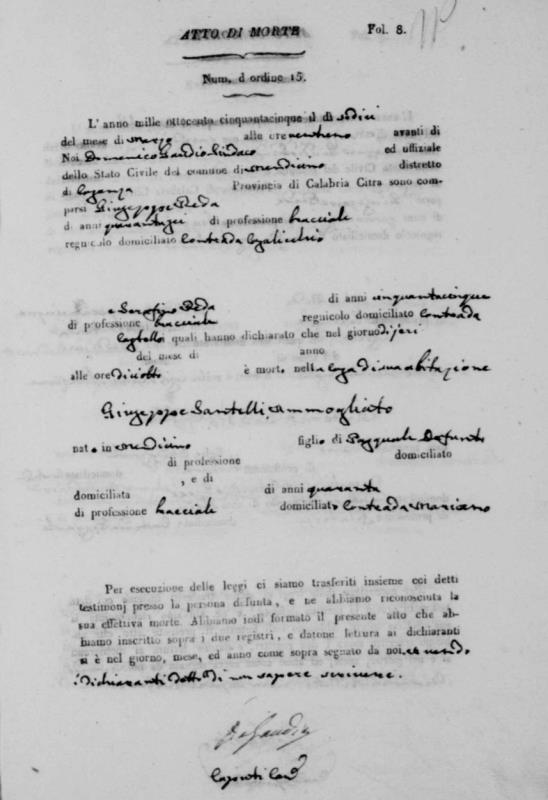 ATTO DI MORTE Fol. 8.
Num. d ordine 15.
L' anno mille ottocento cinquantacinque il dì sedici
del mese di Marzo alle ore ventuno avanti di
Noi Domenico Gaudio Sindaco ed uffiziale
dello Stato Civile del comune di Mendicino distretto
di Cosenza Provincia di Calabria Citra sono com-
parsi Giuseppe Reda
di anni quarantasei di professione bracciale
regnicolo domiciliato Contrada
e Serafino Reda di anni cinquantacinque
di professione bracciale regnicolo domiciliato Contrada
Castello i quali hanno dichiarato che nel giorno di jeri
del mese di anno
alle ore diciotto è mort. nella casa di sua abitazione
Giuseppe Santelli ammogliato
nato in Mendicino figlio di Pasquale Defunto
di professione domiciliato
, e di
domiciliata di anni quaranta
di professione bracciale domiciliato Contrada
Per esecuzione delle leggi ci siamo trasferiti insieme coi detti
testimonj presso la persona defunta, e ne abbiamo riconosciuta la
sua effettiva morte. Abbiamo indi formato il presente atto che ab-
biamo inscritto sopra i due registri, e datone lettura ai dichiaranti
si è nel giorno, mese, ed anno come sopra segnato da noi, avendo
i dichiaranti detto di non sapere scrivere.